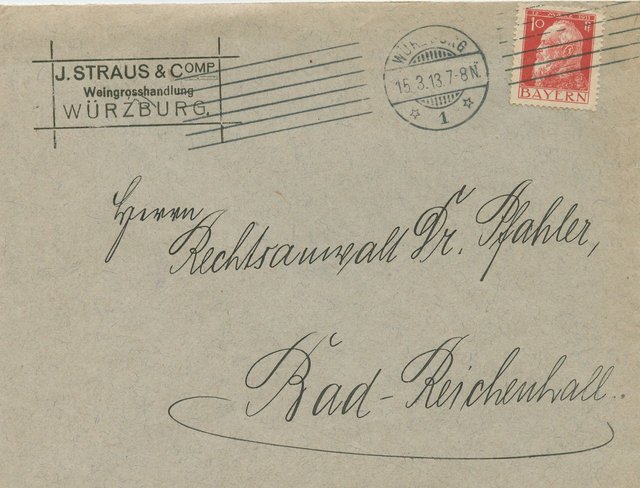 J. STRAUS & COMP
Weingrosshandlung
WÜRZBURG.
WÜRZBURG
15.3.13.7-8N.
1
12 MÄRZ 1911
10
BAYERN
Herrn
Rechtsanwalt Dr. Pfahler,
Bad-Reichenhall.